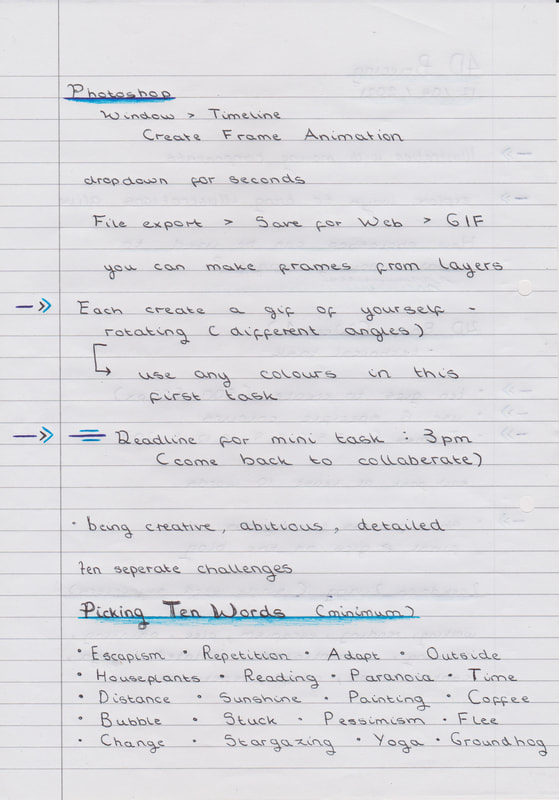 Photoshop
Window > Timeline
Create Frame Animation
dropdown for seconds
File export > Save for Web > GIF
you can make frames from layers
Each create a gif of yourself -
rotating (different angles)
use any colours in this
first task
Deadline for mini task : 3pm
(come back to collaberate)
• being creative, abitious, detailed
ten seperate challenges
Picking Ten Words (minimum)
• Escapism • Repetition • Adapt • Outside
• Houseplants • Reading • Paranoia • Time
• Distance • Sunshine • Painting • Coffee
• Bubble • Stuck • Pessimism • Flee
• Change • Stargazing • Yoga • Groundhog